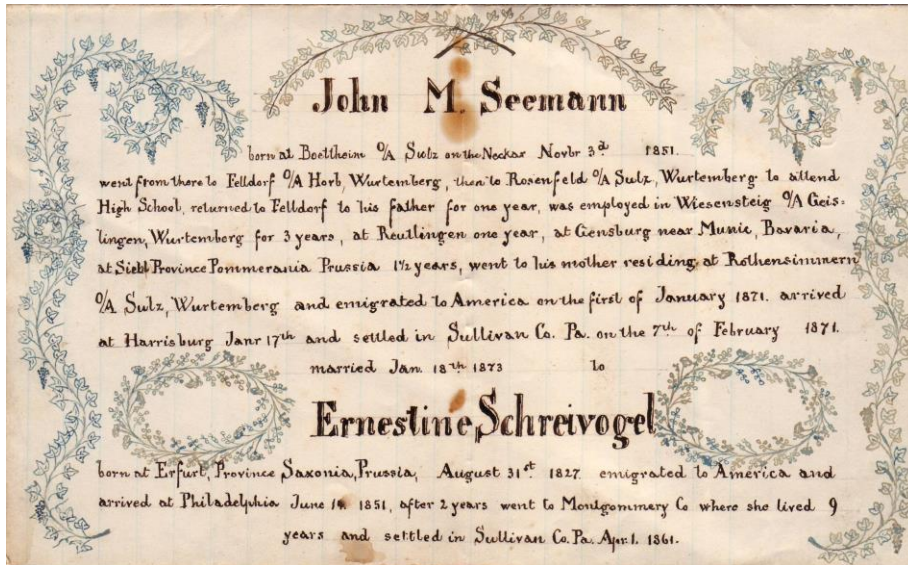 John M. Seemann
born at Boettheim O/A Sulz on the Neckar Novbr 3d. 1851.
went from there to Felldorf O/A Horb, Wurtemberg, then to Rosenfeld O/A Sulz, Wurtemberg to attend
High School, returned to Felldorf to his father for one year, was employed in Wiesensteig O/A Geis-
lingen, Wurtemberg for 3 years, at Reutlingen one year, at Gensburg near Munic, Bavaria,
at Province Pommerania Prussia 1½ years, went to his mother residing at Rothensimmern
O/A Sulz, Wurtemberg and emigrated to America on the first of January 1871. arrived
at Harrisburg Janr 17th and settled in Sullivan Co. Pa. on the 7th of February 1871.
married Jan. 18th 1873 to
Ernestine Schreivogel
born at Erfurt, Province Saxonia, Prussia, August 31st 1827 emigrated to America and
arrived at Philadelphia June 1851, after 2 years went to Montgommery Co where she lived 9
years and settled in Sullivan Co. Pa. Apr. 1. 1861.